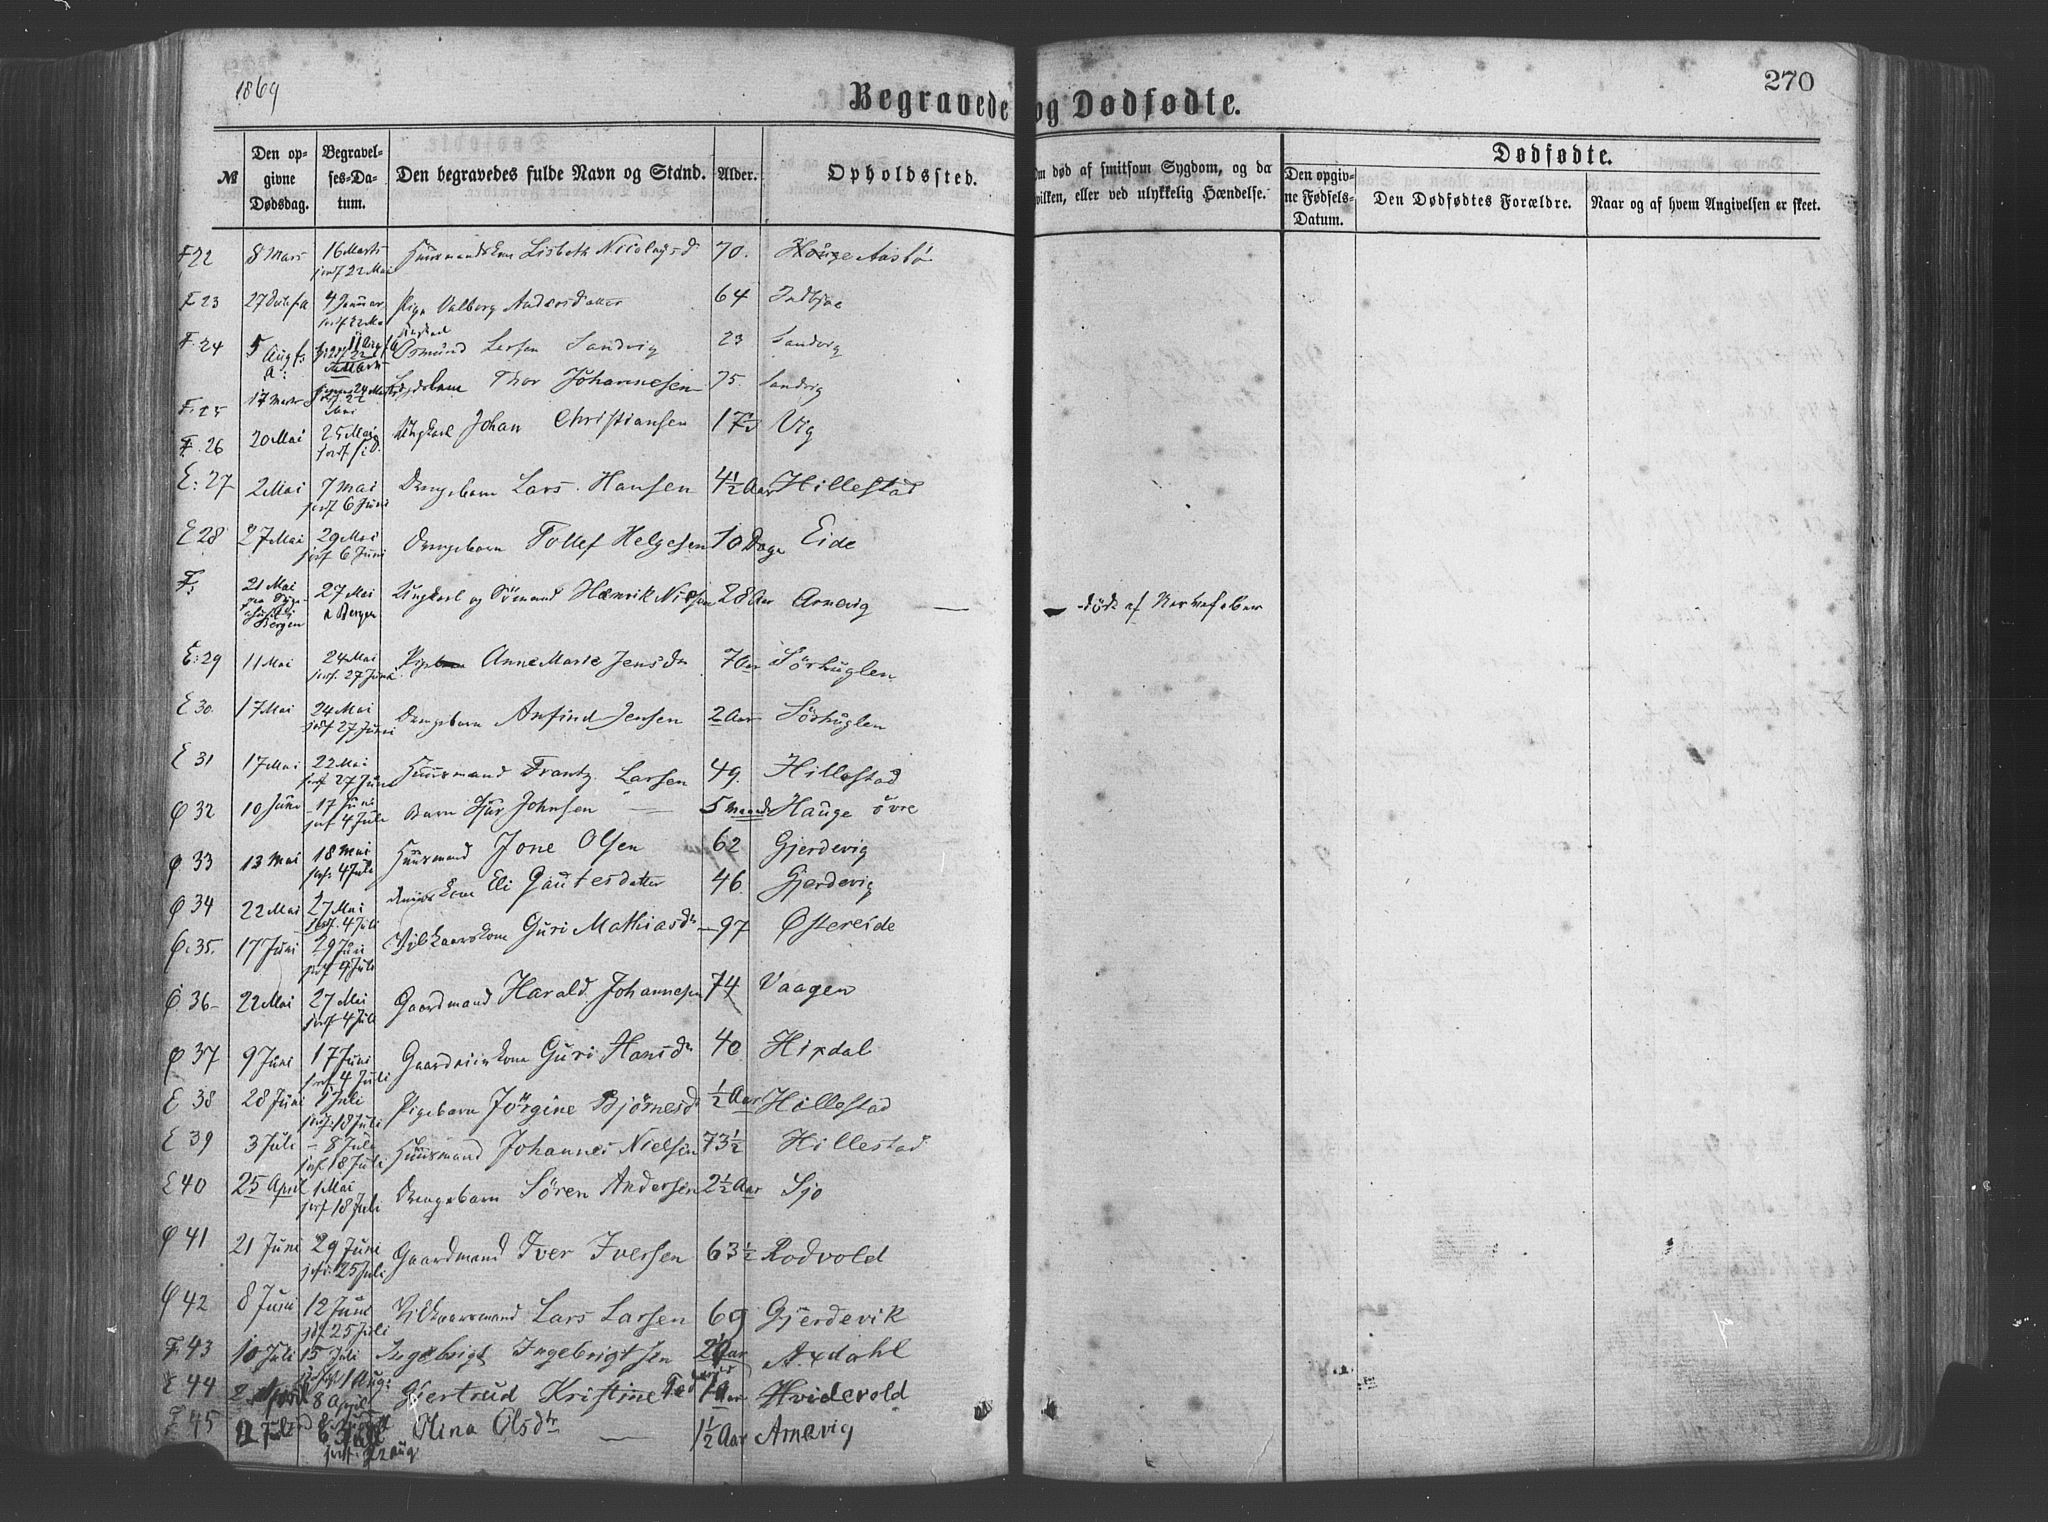 1869
Begravede og Dødfødte.
270
№
Den opgivne Dødsdag.
Begravelses-Datum.
Den begravedes fulde Navn og Stand.
Alder.
Opholdssted.
Om død af smitsom Sygdom, og da hvilken, eller ved ulykkelig Hændelse.
Dødfødte.
Den opgivne Fødsels-Datum.
Den Dødfødtes Forældre.
Naar og af hvem Angivelsen er skeet.
F 22 8 Mars 16 Marts jordf 22 Mai Huusmandskone Lisbeth Nicolaysd 70. Hauge Aasbø
F 23 4 Januar Pige Valborg Andersdatter 64
F. 24 5 Aug f. a: Ungkarl Osmund Larsen Sandvig 23 Sandvig
F. 25 17 Marts Thor Johannesen 75. Sandvig
F. 26 20 Mai 25 Mai Ungkarl Johan Christiansen 17 Vig
E: 27 2 Mai 7 Mai jordf 6 Juni Drengebarn Lars Hansen 4½ Aar Hillestad
E 28 27 Mai 29 Mai jordf 6 Juni Drengebarn Tollef Helgesen 10 Dage Eide
F: 21 Mai Bergen 27 Mai i Bergen Ungkarl og Sømand Henrik Nielsen 28 Aar Arnevig — død af Nervefeber
E: 29 11 Mai 24 Mai jordf. 27 Juni Anne Marie Jensdr 7 Aar Sørhuglen
E 30. 17 Mai 24 Mai jordf 27 Juni Drengebarn Anfind Jensen 2 Aar Sørhuglen
E 31 17 Mai 22 Mai jordf 27 Juni Huusmand Frantz Larsen 49. Hillestad
Ø 32 10 Juni 17 Juni jordf 4 Juli Barn Johnsen — 5 Maand Hauge øvre
Ø. 33 13 Mai 18 Mai jordf. 4 Juli Huusmand Jone Olsen 62 Gjerdevig
Ø 34 22 Mai 27 Mai jordf. 4 Juli Eli Gautesdatter 46. Gjerdevig
Ø. 35. 17 Juni 29 Juni jordf 9 Juli Vilkaarskone Guri Mathiasdr 97 Østereide
Ø 36 22 Mai 27 Mai jordf 4 Juli Gaardmand Harald Johannesen 74 Vaagen
Ø 37 9 Juni 17 Juni jordf 4 Juli Guri Hansdr 40 Hixdal
E 38 28 Juni 1 Juli jordf: 18 Juli Pigebarn Jørgine Bjørnesd ½ Aar Hillestad
E 39 3 Juli 8 Juli jordf. 18 Juli Huusmand Johannes Nielsen 73½ Hillestad
E 40 25 April 1 Mai jordf 18 Juli Drengebarn Søren Andersen 2½ Aar Sjo
Ø 41 21 Juni 29 Juni jordf: 25 Juli Gaardmand Iver Iversen 63½ Rodvold
Ø 42 8 Juni 12 Juni jordf 25 Juli Vilkaarsmand Lars Larsen 69 Gjerdevik
F 43 10 Juli 15 Juli 1 Aug: Ingebrigt Ingebrigtsen Axdahl
E 44 8 April Gjertrud Kristine Hvidevold
F 45 Olina Olsdtr — 1½ Aar Arnevig